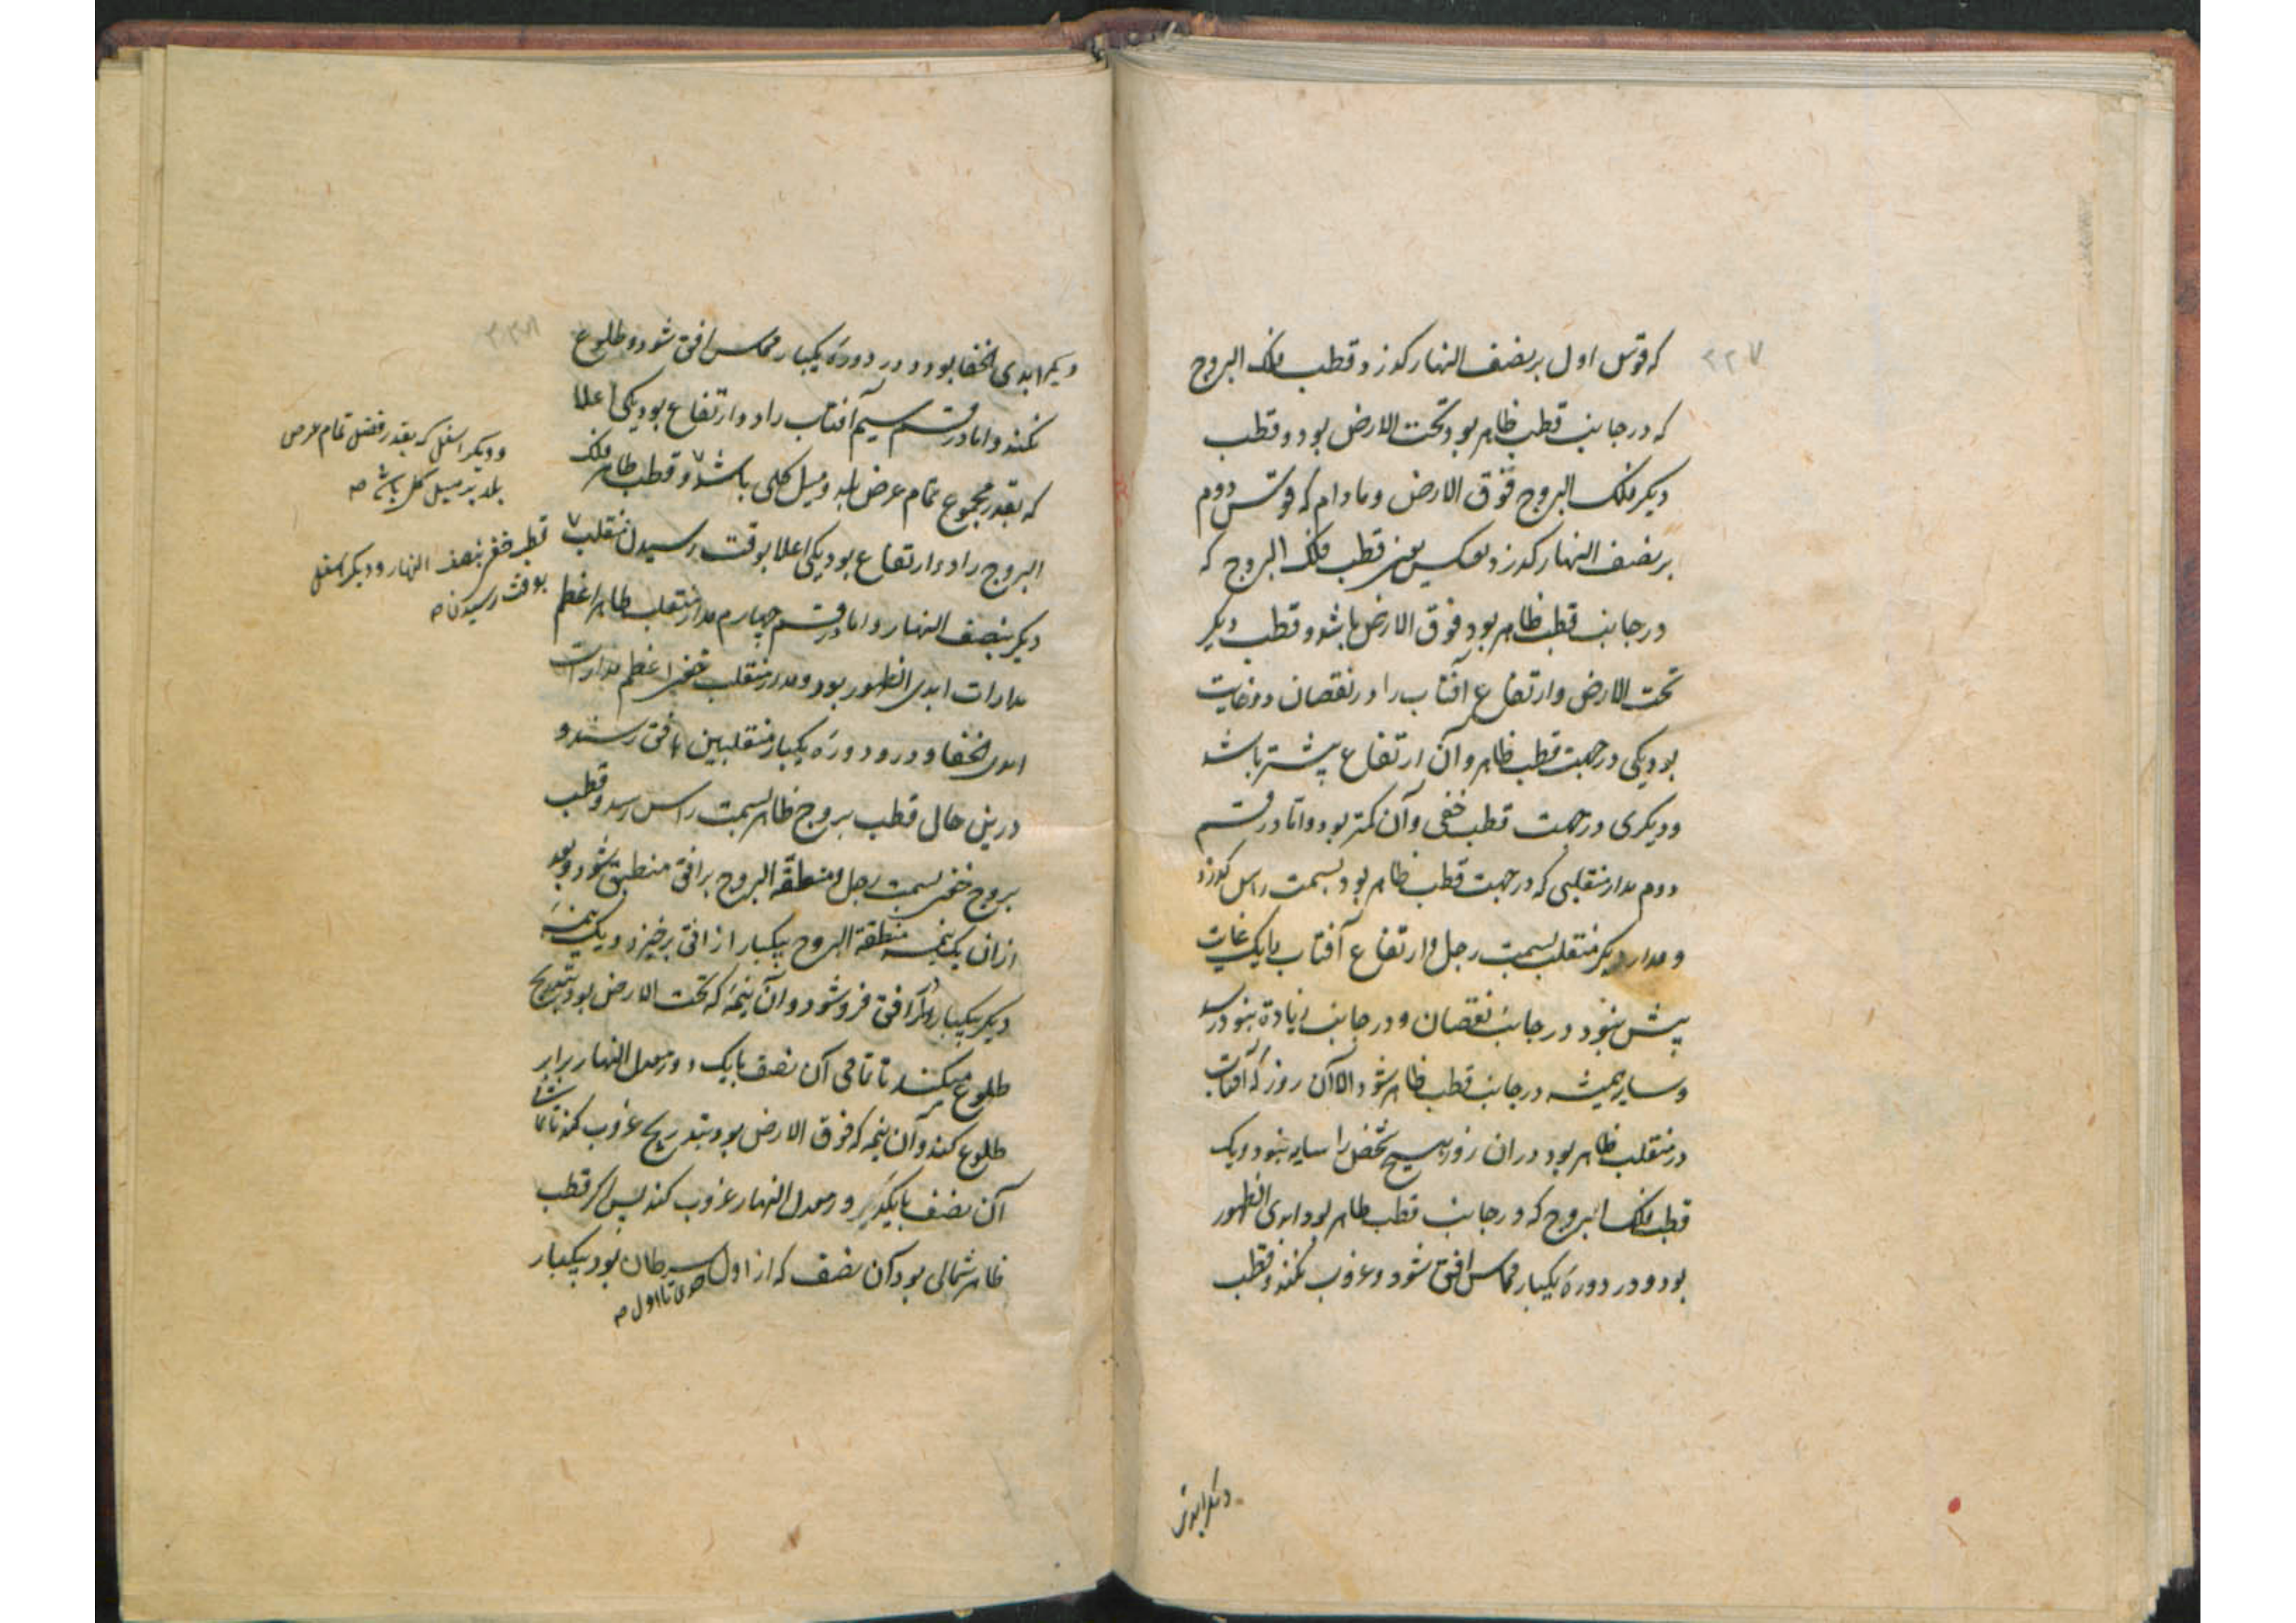 ۲۲۷
که قوس اول بر نصف النهار گذرد و قطب فلک البروج
که در جانب قطب ظاهر بود تحت الارض بود و قطب
دیگر فلک البروج فوق الارض و مادام که قوس دوم
بر نصف النهار گذرد بعکس یعنی قطب فلک البروج که
در جانب قطب ظاهر بود فوق الارض باشد و قطب دیگر
تحت الارض و ارتفاع آفتاب را در نقصان دو غایت
بود یکی در جهت قطب ظاهر و آن ارتفاع بیشتر باشد
و دیگری در جهت قطب خفی و آن کمتر بود و اما در قسم
دوم مدار منقلبی که در جهت قطب ظاهر بود بسمت راس گذرد
و مدار دیگر منقلب بسمت رجل و ارتفاع آفتاب را یک غایت
بیش نبود در جانب نقصان و در جانب زیادة بنود رسد
و سایه همیشه در جانب قطب ظاهر شود الا آن روز که آفتاب
در منقلب ظاهر بود در ان روز هیچ شخص را سایه نبود و یک
قطب فلک البروج که در جانب قطب ظاهر بود ابدی الظهور
بود و در دورهٔ یکبار مماس افق شود و غروب نکند و قطب
دیگر ابدی
۲۲۸
دیگر ابدی الخفا بود و در دورهٔ یکبار مماس افق شود و طلوع
نکند و اما در قسم سیم آفتاب را دو ارتفاع بود یکی اعلا
که بقدر مجموع تمام عرض بلد و میل کلی باشد و قطب ظاهر فلک
البروج را دو ارتفاع بود یکی اعلا بوقت رسیدن منقلب
دیگر بنصف النهار و اما در قسم چهارم مدار منقلب ظاهر اعظم
مدارات ابدی الظهور بود و مدار منقلب خفی اعظم مدارات
ابدی الخفا و در دورهٔ یکبار منقلبین بافق رسند و
درین حال قطب بروج ظاهر بسمت راس رسد و قطب
بروج خفی بسمت رجل و منطقة البروج بر افق منطبق شود و بعد
ازان یک نیمه منطقة البروج بیکبار از افق برخیزد و یک نیمهٔ
دیگر بیکبار افق فرو شود و آن نیمه که تحت الارض بود بتدریج
طلوع میکند تا تمامی آن نصف با یک دور معدل النهار برابر
طلوع کند و آن نیمه که فوق الارض بود بتدریج غروب کند تا تمام
آن نصف با یک دور معدل النهار غروب کند پس اگر قطب
ظاهر شمالی بود آن نصف که از اول سرطان بود بیکبار
تا اول صه
و دیگر اسفل که بقدر فضل تمام عرض
بلد بر میل کلی باشد صه
قطب خفی بنصف النهار و دیگر اسفل
بوقت رسیدن صه